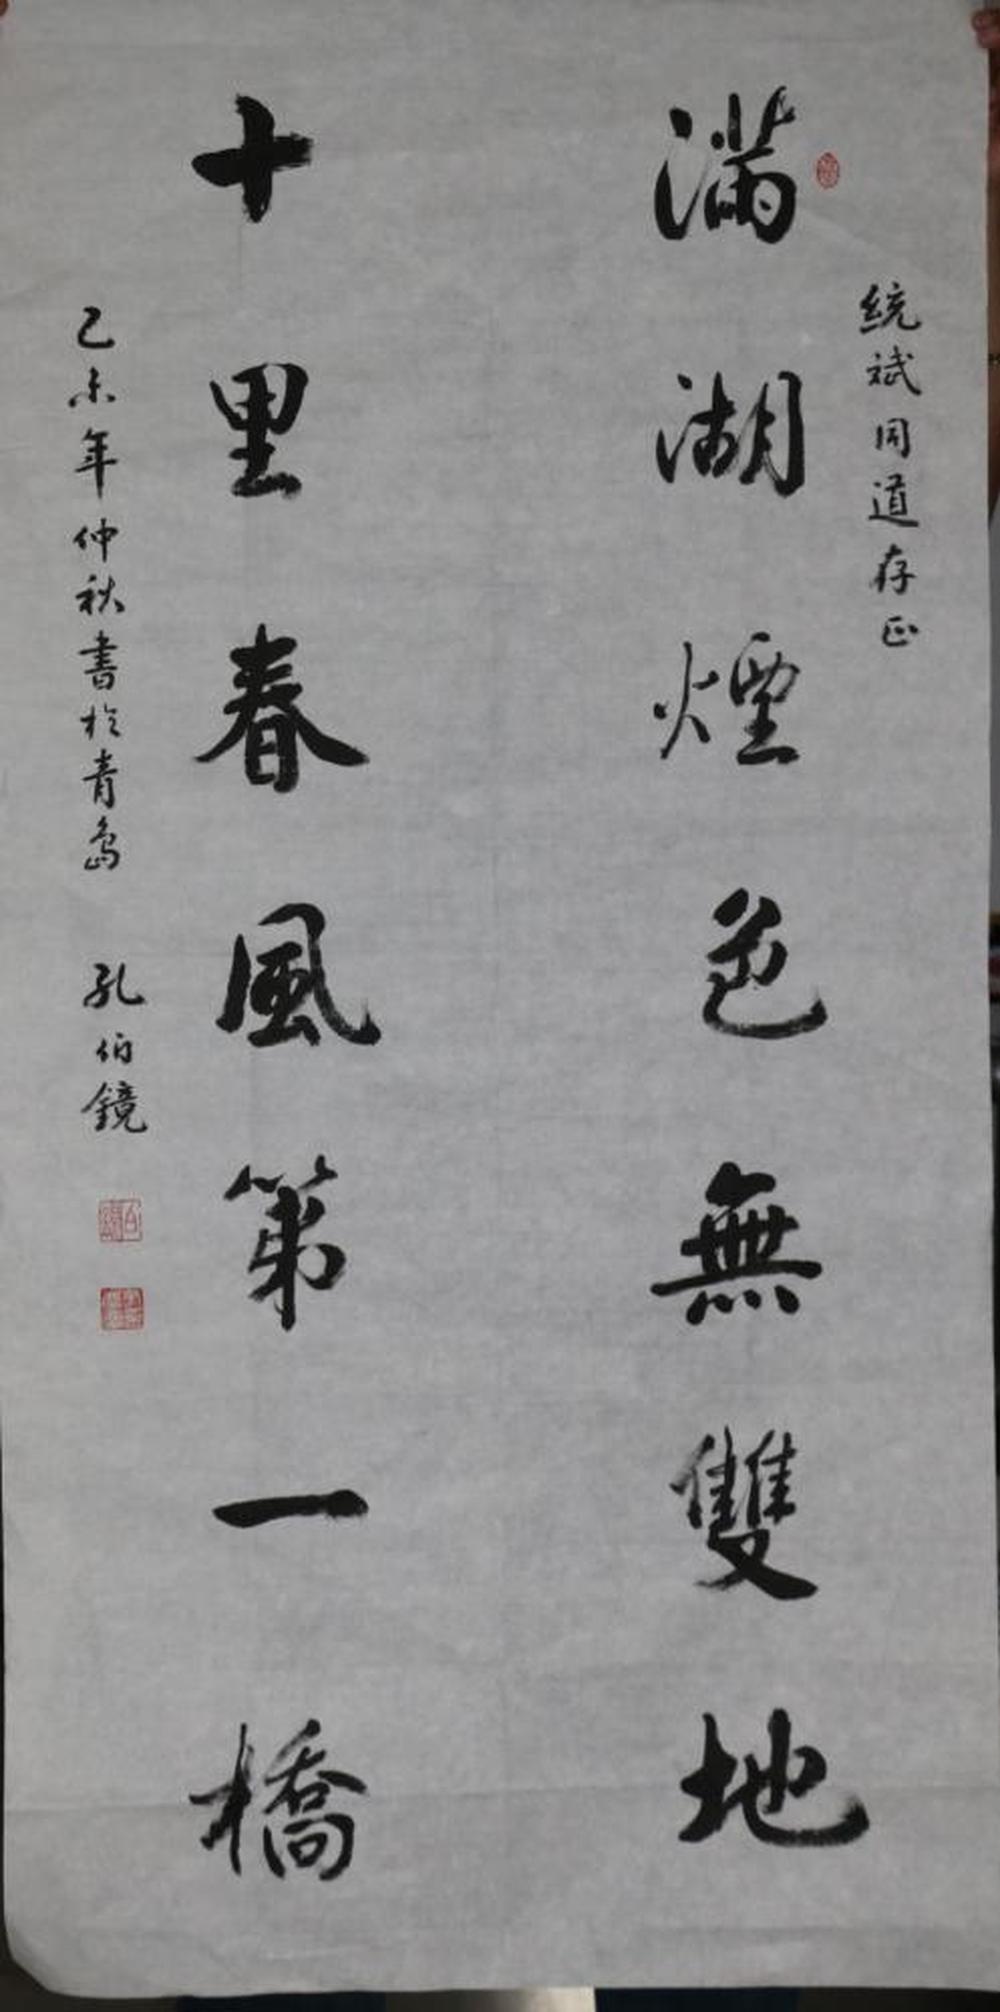 統斌同道存正
滿湖煙色無雙地
十里春風第一橋
乙未年仲秋書於青島 孔伯鏡